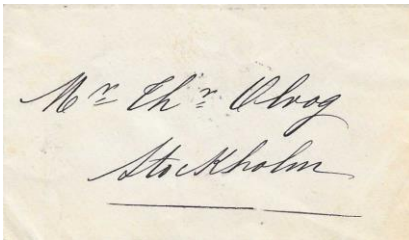 Mr Thr Olvog
Stockholm